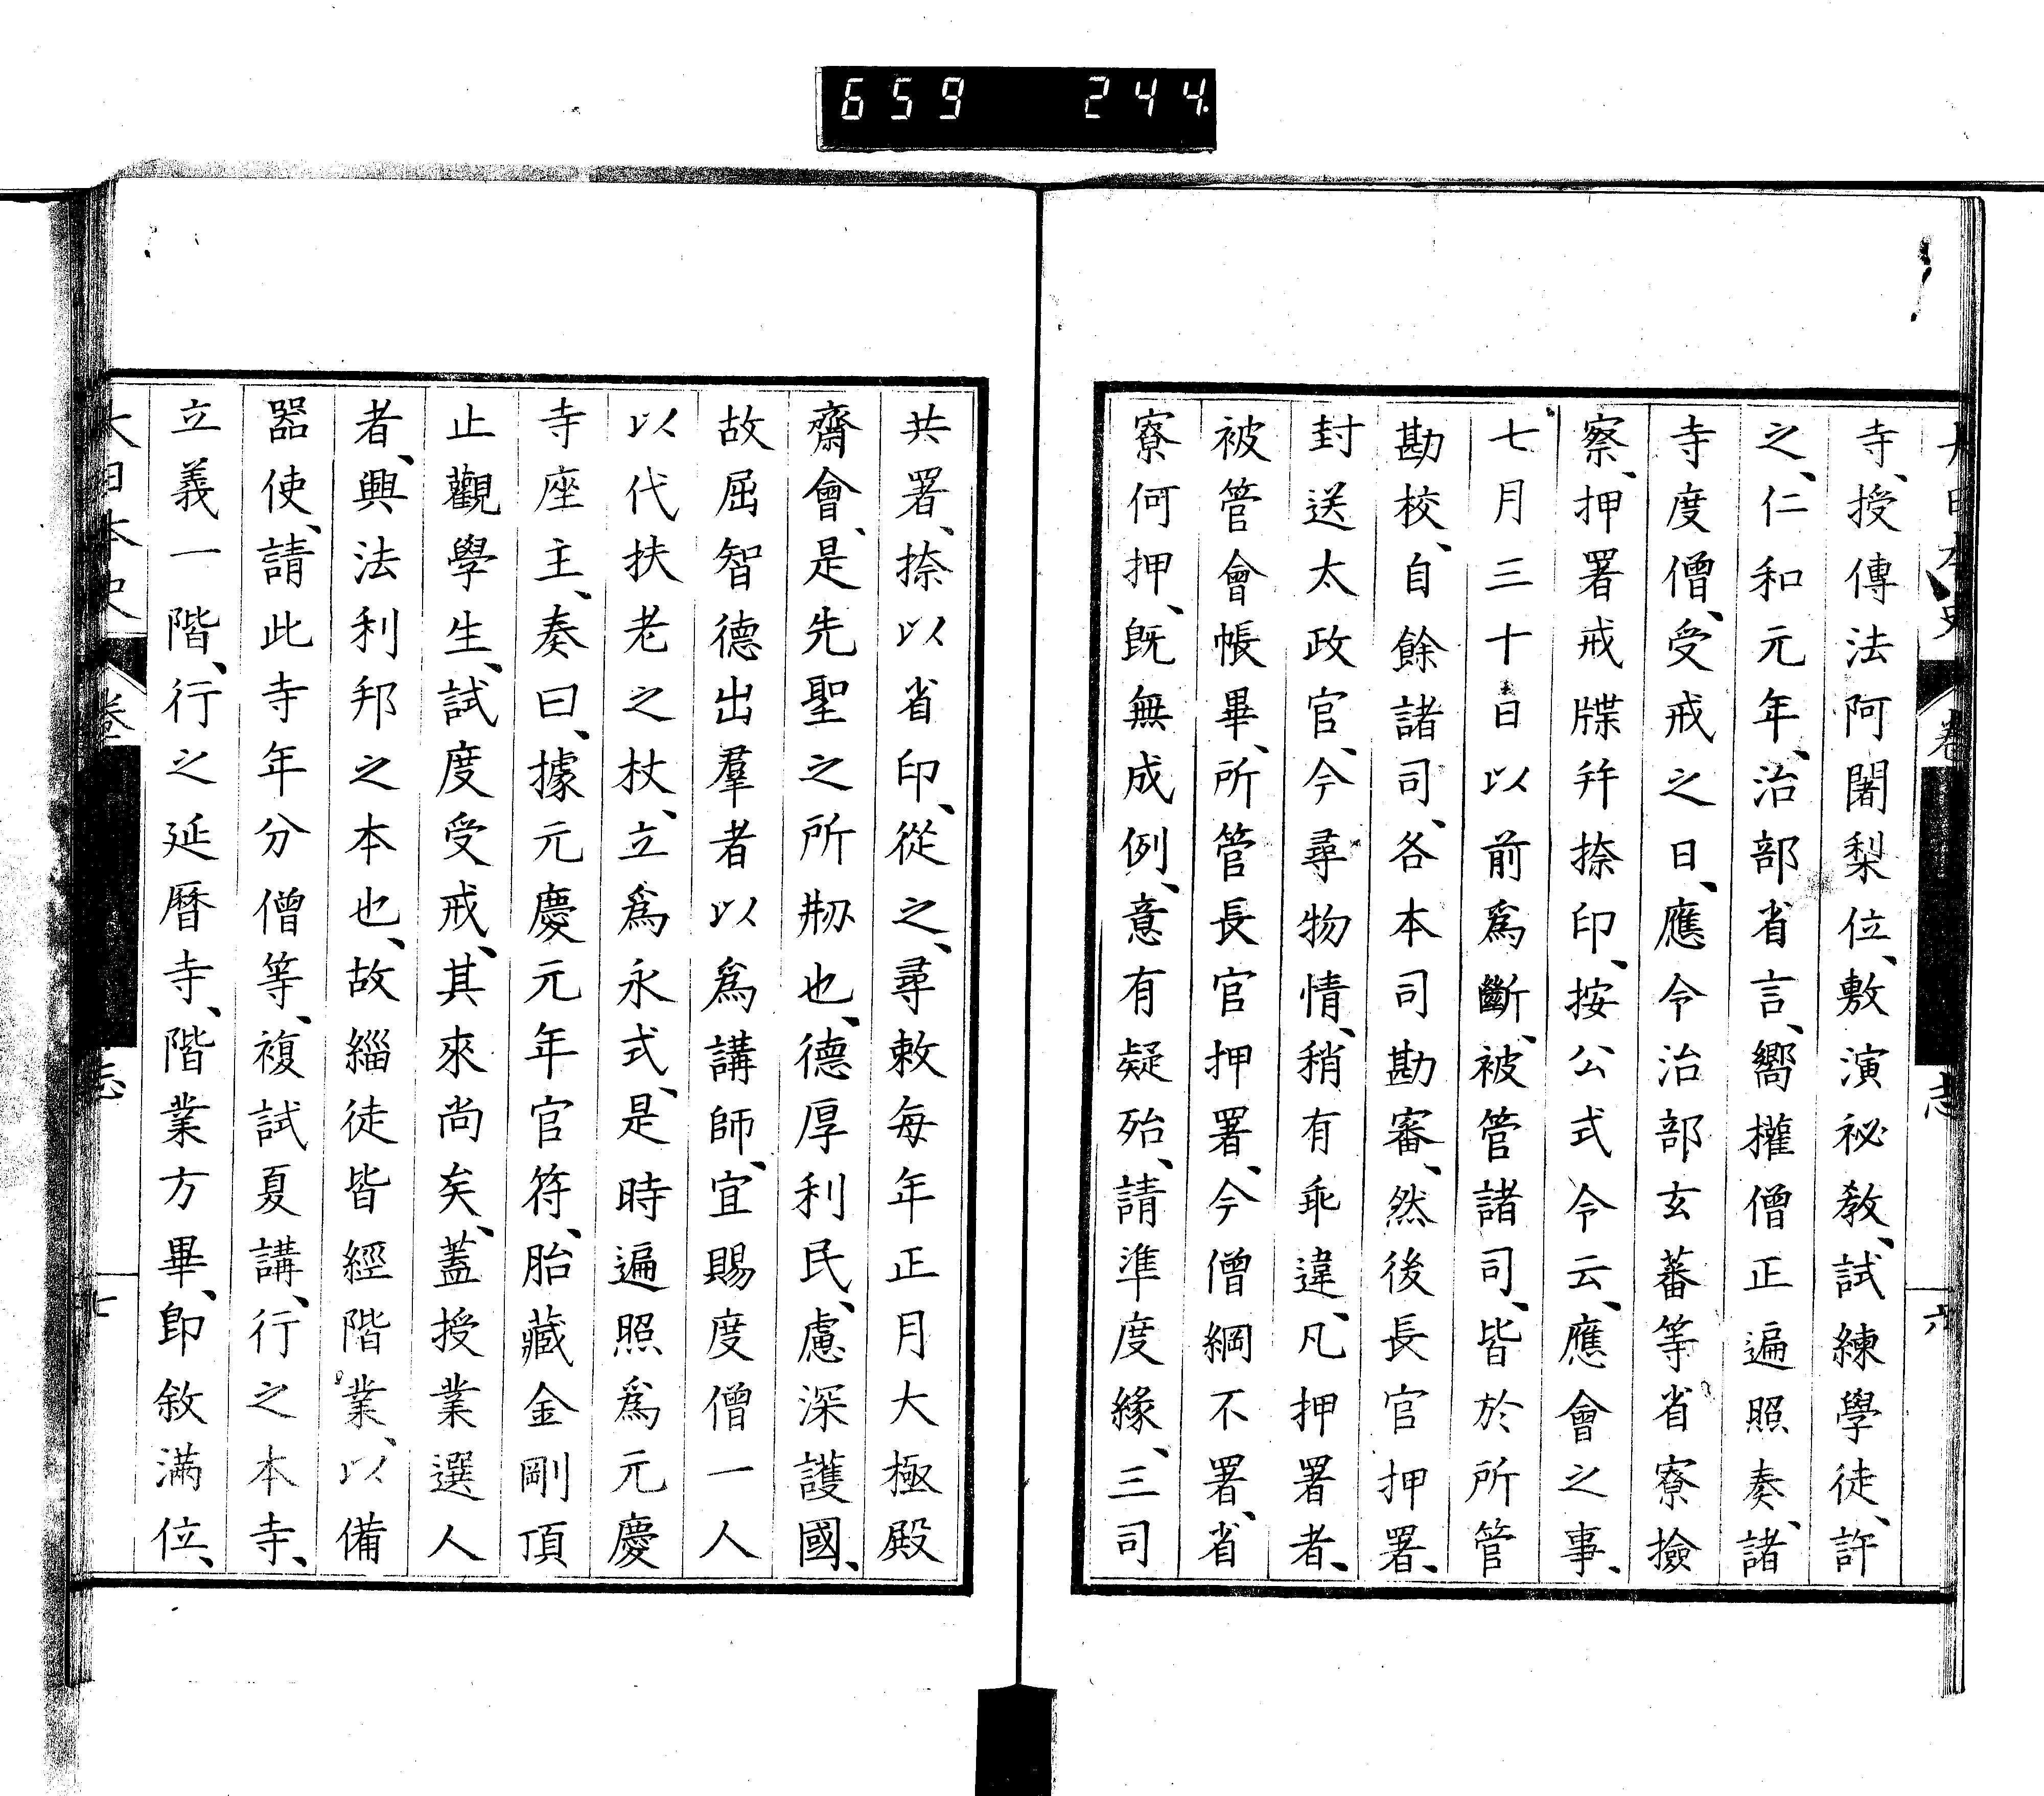 659 244
大日本史 卷 志 六
寺、授傳法阿闍梨位、敷演祕敎、試練學徒、許
之、仁和元年、治部省言、嚮權僧正遍照奏、諸
寺度僧、受戒之日、應令治部玄蕃等省寮撿
察、押署戒牒幷捺印、按公式令云、應會之事、
七月三十日以前爲斷、被管諸司、皆於所管
勘校、自餘諸司、各本司勘審、然後長官押署、
封送太政官、今尋物情、稍有乖違、凡押署者、
被管會帳畢、所管長官押署、今僧綱不署、省
寮何押、旣無成例、意有疑殆、請準度緣、三司
共署、捺以省印、從之、尋敕每年正月大極殿
齋會、是先聖之所刱也、德厚利民、慮深護國、
故屈智德出羣者以爲講師、宜賜度僧一人
以代扶老之杖、立爲永式、是時遍照爲元慶
寺座主、奏曰、據元慶元年官符、胎藏金剛頂
止觀學生、試度受戒、其來尚矣、蓋授業選人
者、興法利邦之本也、故緇徒皆經階業、以備
器使、請此寺年分僧等、複試夏講、行之本寺、
立義一階、行之延曆寺、階業方畢、卽敘滿位、
大日本史 卷 志 七